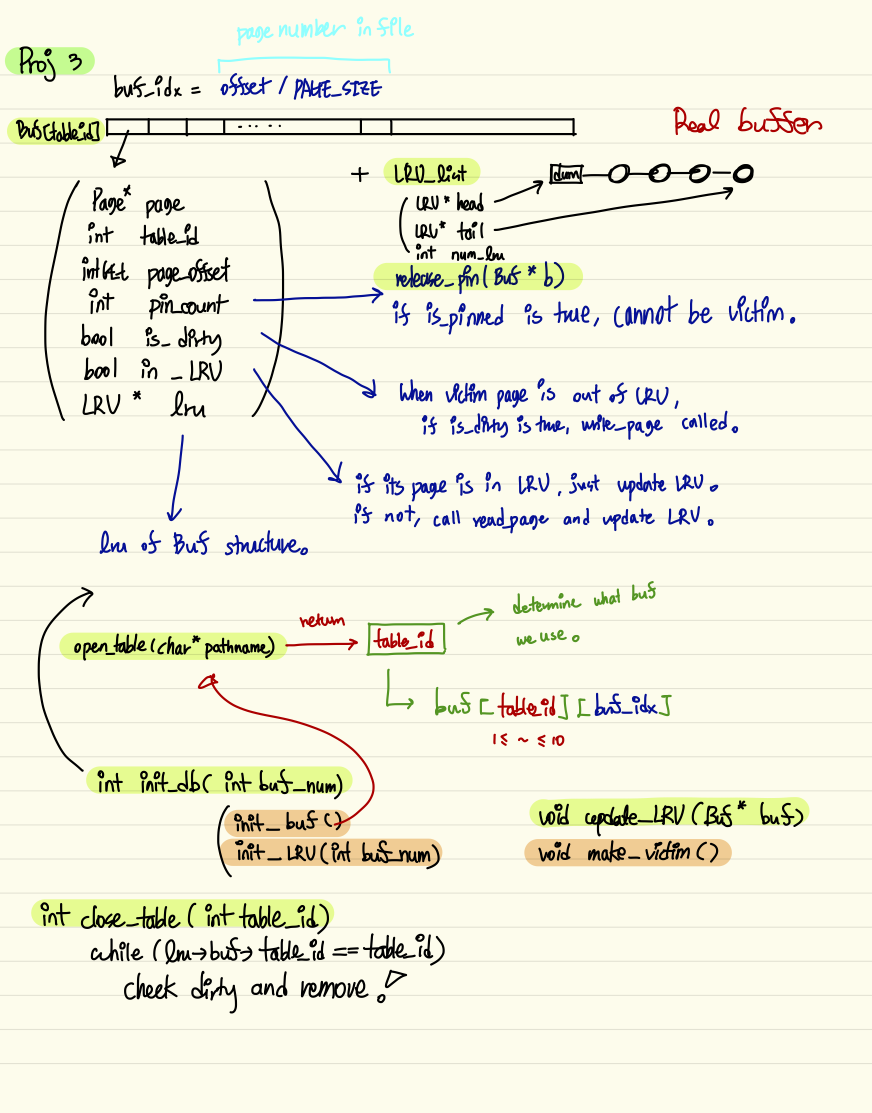 page number in file
Proj 3
buf_idx = offset / PAGE_SIZE
Buf[table_id]
Real buffer
+ LRU_list
dum
LRU* head
LRU* tail
int num_lru
Page* page
int table_id
int64_t page_offset
int pin_count
bool is_dirty
bool in_LRU
LRU* lru
release_pin(Buf* b)
if is_pinned is true, cannot be victim.
When victim page is out of LRU,
if is_dirty is true, write_page called.
if its page is in LRU, just update LRU.
if not, call read_page and update LRU.
lru of Buf structure.
open_table(char* pathname)
return
table_id
determine what buf
we use.
buf[table_id][buf_idx]
1≤ ~ ≤10
int init_db(int buf_num)
init_buf()
init_LRU(int buf_num)
void update_LRU(Buf* buf)
void make_victim()
int close_table(int table_id)
while (lru→buf→table_id == table_id)
check dirty and remove!